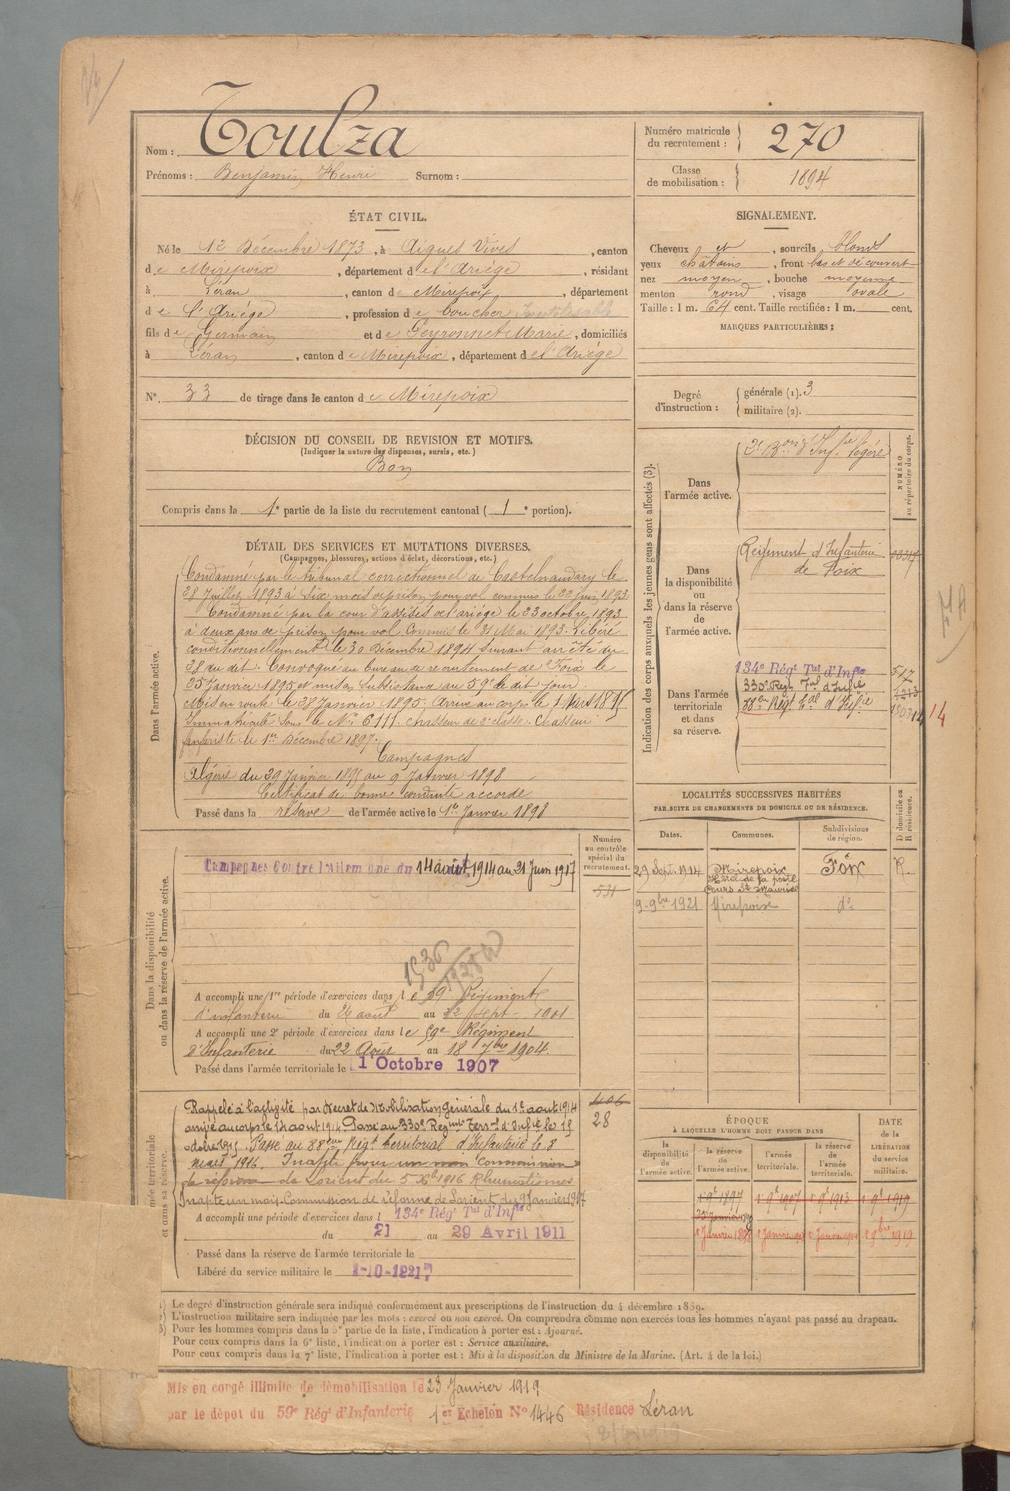 Nom : Toulza
Prénoms : Benjamin Henri Surnom :
Numéro matricule du recrutement : 270
Classe de mobilisation : 1894
ÉTAT CIVIL.
Né le 12 Décembre 1873, à Aigues Vives, canton
de Mirepoix, département de l'Ariége, résidant
à Léran, canton de Mirepoix, département
de l'Ariége, profession de boucher
fils de Germain et de Peyronnet Marie, domiciliés
à Léran, canton de Mirepoix, département de l'Ariége
N° 33 de tirage dans le canton de Mirepoix
SIGNALEMENT.
Cheveux et, sourcils blonds
yeux châtains, front bas et découvert
nez moyen, bouche moyenne
menton rond, visage ovale
Taille : 1 m. 64 cent. Taille rectifiée : 1 m. cent.
MARQUES PARTICULIÈRES :
Degré d'instruction : générale (1). 3
militaire (2).
DÉCISION DU CONSEIL DE REVISION ET MOTIFS.
(Indiquer la nature des dispenses, sursis, etc.)
Bon
Compris dans la 1e partie de la liste du recrutement cantonal ( 1 e portion).
DÉTAIL DES SERVICES ET MUTATIONS DIVERSES.
(Campagnes, blessures, actions d'éclat, décorations, etc.)
Dans l'armée active.
Condamné par le tribunal correctionnel de Castelnaudary le
28 Juillet 1893 à Six mois de prison pour vol commis le 22 juin 1893.
Condamné par la cour d'assises de l'ariége le 23 octobre 1893
à deux ans de prison pour vol Commis le 21 Mai 1893. Libéré
conditionnellement le 30 Décembre 1894 suivant arrêté du
28 au dit. Convoqué au bureau de recrutement de Foix le
25 Janvier 1895 et mis en Subsistance au 59e le dit jour.
Mis en route le 28 Janvier 1895. Arrivé au corps le 1 Mars 1895
Immatriculé sous le N° 6111. Chasseur de 2e classe. Chasseur
le 1er Décembre 1897.
Campagnes
Algérie du 29 Janvier 1895 au 9 Janvier 1898
Certificat de bonne conduite accordé
Passé dans la réserve de l'armée active le 1er Janvier 1898
Indication des corps auxquels les jeunes gens sont affectés (3).
NUMÉRO au répertoire du corps.
Dans l'armée active. 2e Bon d'Inf. légère
Dans la disponibilité ou dans la réserve de l'armée active. Régiment d'Infanterie de Foix
Dans l'armée territoriale et dans sa réserve. 134e Régt Tal d'Infie 517
330e Regt Tal d'Infie
88e Regt Tal d'Infie
14
LOCALITÉS SUCCESSIVES HABITÉES
PAR SUITE DE CHANGEMENTS DE DOMICILE OU DE RÉSIDENCE.
Dates. Communes. Subdivisions de région. D domicile ou R résidence.
29 Sept. 1914 Mirepoix Hôtel de la poste Cours St Maurice Foix R.
9-9bre 1921 Mirepoix do
Dans la disponibilité ou dans la réserve de l'armée active.
Numéro au contrôle spécial du recrutement.
531
Campagnes Contre l'Allemagne du 14 août 1914 au 21 Juin 1917
1536
A accompli une 1re période d'exercices dans le 59e Régiment
d'infanterie du 26 août au 22 Sept 1901
A accompli une 2e période d'exercices dans le 59e Régiment
d'Infanterie du 22 Août au 18 7bre 1904.
Passé dans l'armée territoriale le 1 Octobre 1907
406
28
Rappelé à l'activité par Décret de Mobilisation Générale du 1er août 1914
arrivé au corps le 14 août 1914. Passé au 330e Regiment Terral d'Infie le 15
octobre 1915. Passé au 88eme Régt territorial d'Infanterie le 8
mars 1916. Inapte pour un mois Commission
de réforme de Lorient du 5 Xbre 1916 Rhumatismes
Inapte un mois Commission de Réforme de Lorient du 9 Janvier 1917
A accompli une période d'exercices dans l 134e Régt Tal d'Infie
du 21 au 29 Avril 1911
Passé dans la réserve de l'armée territoriale le
Libéré du service militaire le 1-10-1921
ÉPOQUE
À LAQUELLE L'HOMME DOIT PASSER DANS
la disponibilité de l'armée active. la réserve de l'armée active. l'armée territoriale. la réserve de l'armée territoriale. DATE de la LIBÉRATION du service militaire.
1 9bre 1897 1 9bre 1907 1 9bre 1913 1 9bre 1919
1) Le degré d'instruction générale sera indiqué conformément aux prescriptions de l'instruction du 4 décembre 1889.
2) L'instruction militaire sera indiquée par les mots : exercé ou non exercé. On comprendra comme non exercés tous les hommes n'ayant pas passé au drapeau.
3) Pour les hommes compris dans la 5e partie de la liste, l'indication à porter est : Ajourné.
Pour ceux compris dans la 6e liste, l'indication à porter est : Service auxiliaire.
Pour ceux compris dans la 7e liste, l'indication à porter est : Mis à la disposition du Ministre de la Marine. (Art. 4 de la loi.)
Mis en congé illimité de démobilisation le 23 Janvier 1919
par le dépôt du 59e Régt d'Infanterie 1er Echelon N° 1446 Résidence Léran